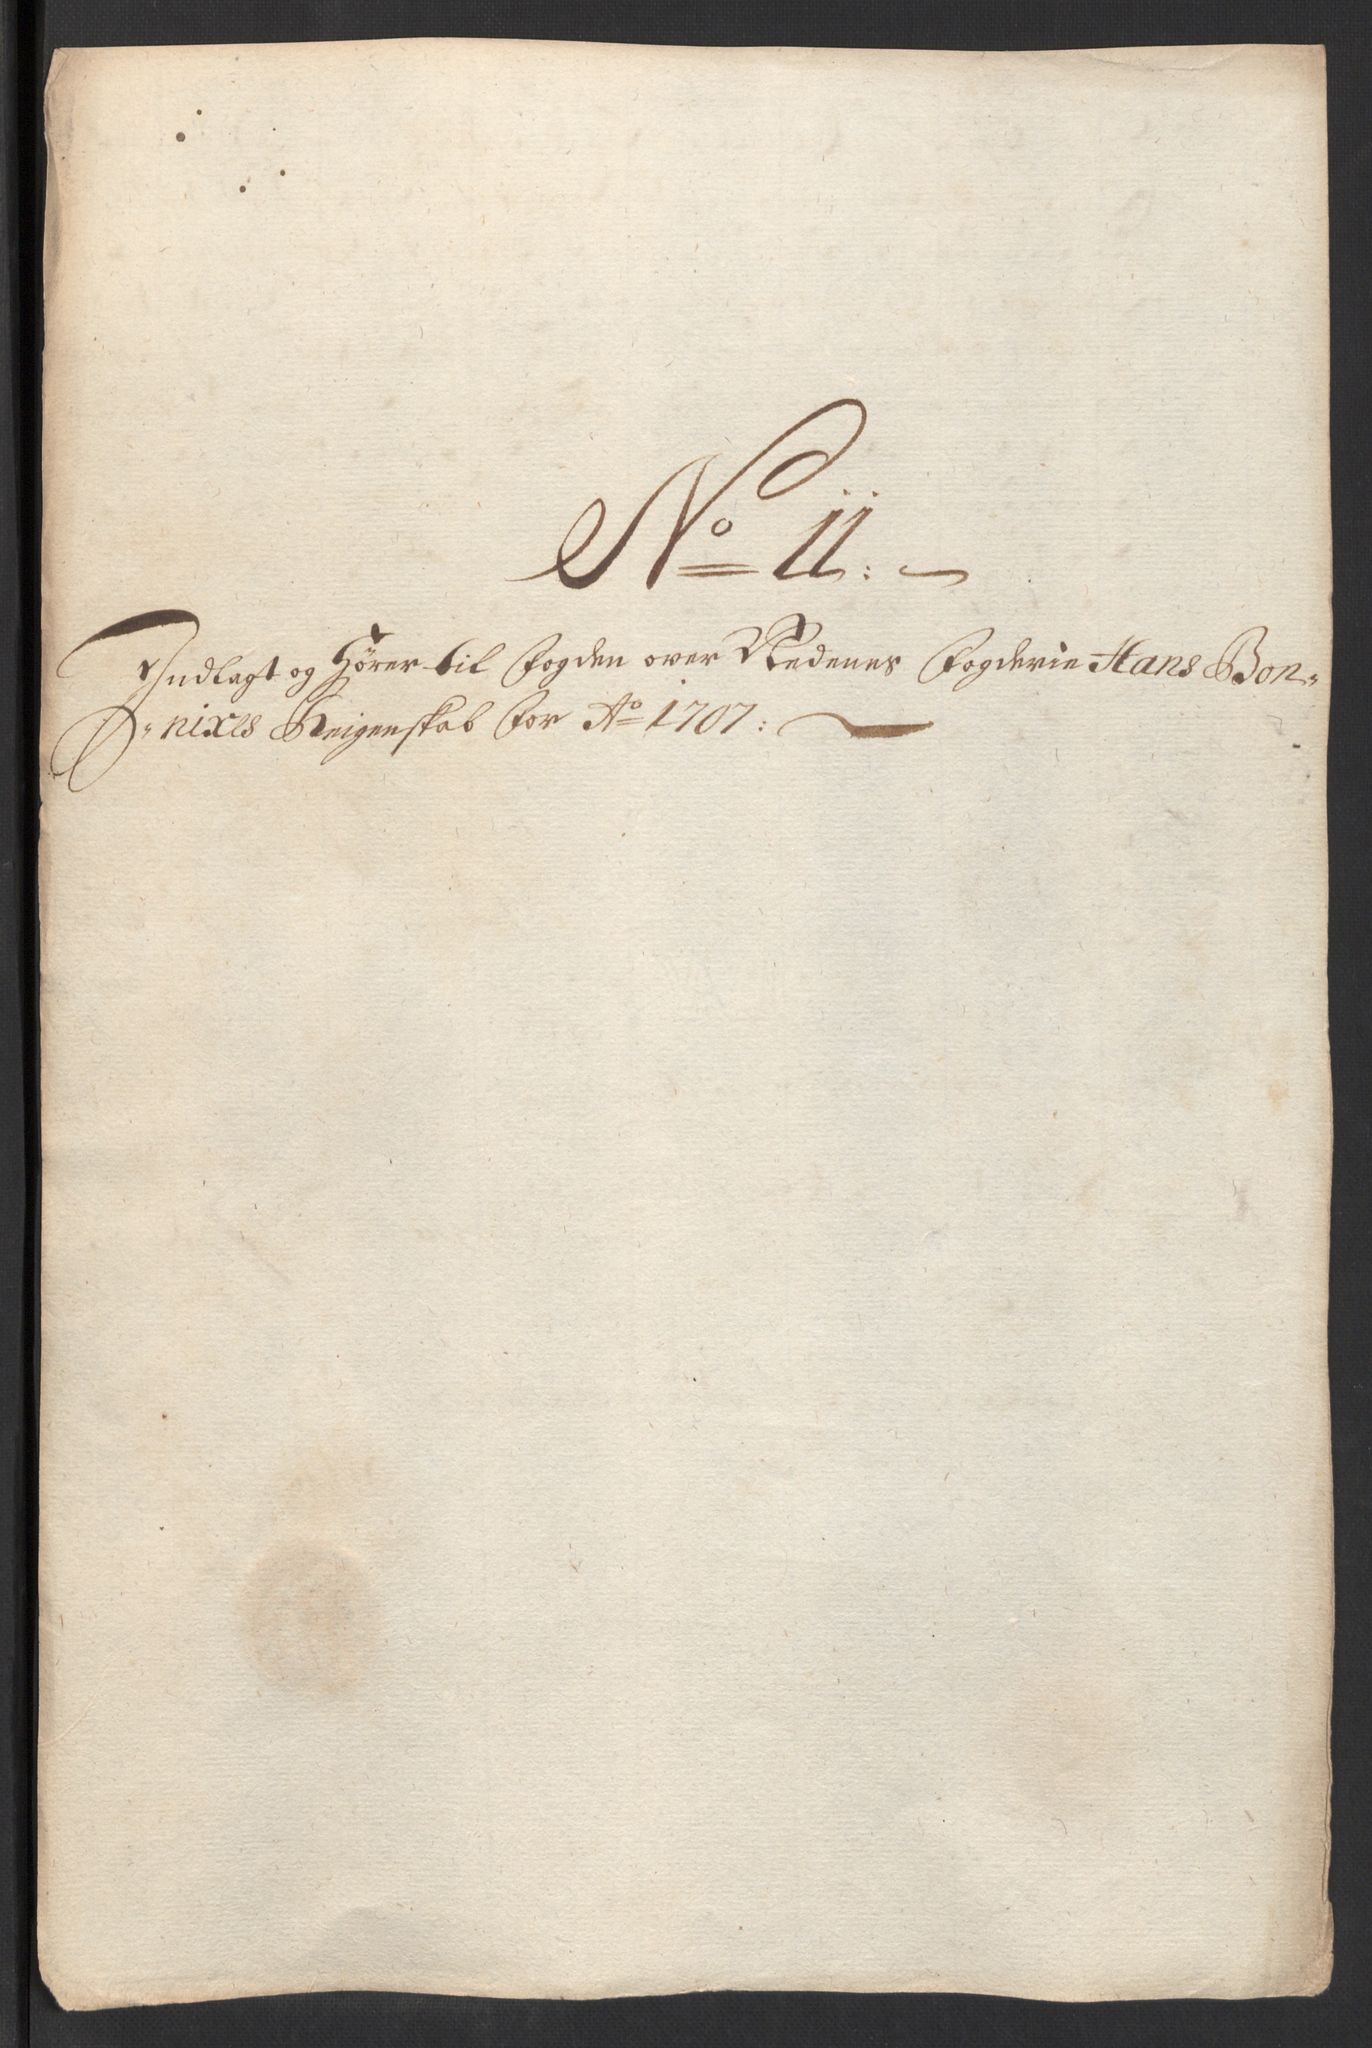 No 11:
Indlagt og Hörer til Fogden over Nedenes Fogderie Hans Bon-
nixes Reigenskab for Ao 1707: